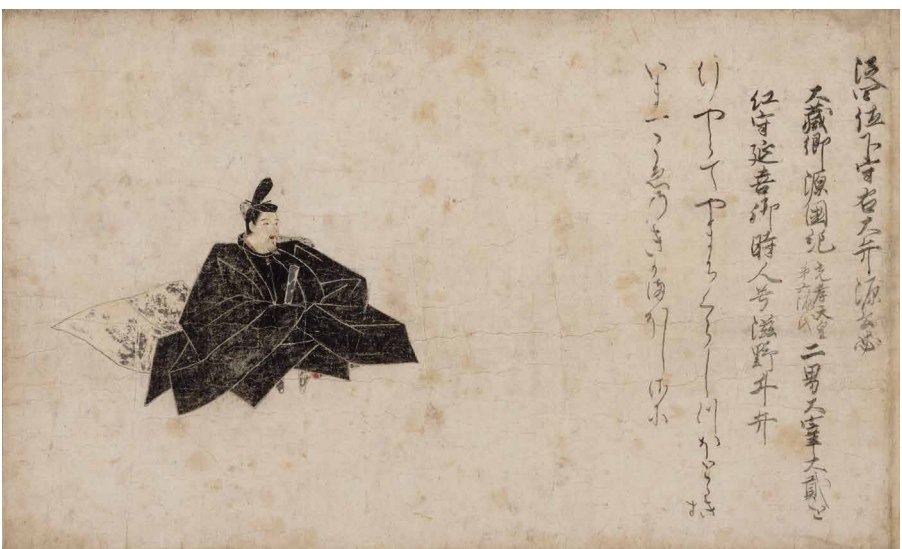 従四位下守右大弁源公忠
大蔵卿源国紀 光孝天皇 第六源氏 二男大宰大貳近
江守延喜御時人号滋野井弁
行やらてやまちくらしつほとゝきす
いま一こゑのきかまほしさに